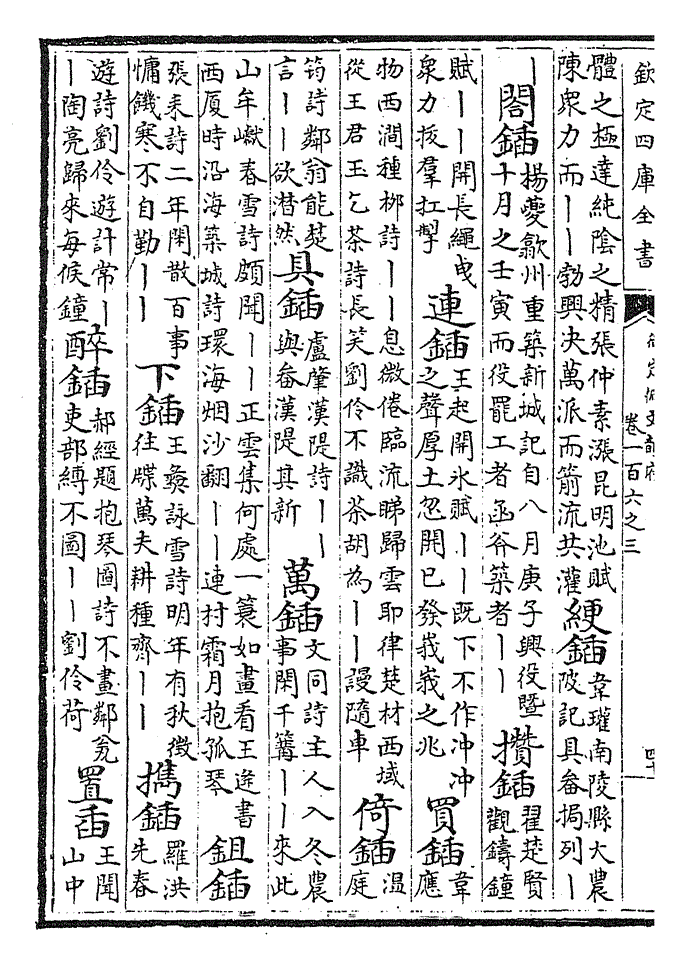 欽定四庫全書
卷一百六之三
四十
體之極達純陰之精張仲素漲昆明池賦
陳衆力而丨丨勃興決萬派而箭流共灌
綆鍤
韋瓘南陵縣大農
陂記具畚挶列丨
丨
閤鍤
楊夔歙州重築新城記自八月庚子興役暨
十月之壬寅而役罷工者函谷築者丨丨
攢鍤
翟楚賢
觀鑄鐘
賦丨丨開長繩曳
衆力拔羣扛掔
連鍤
王起開氷賦丨丨既下不作沖沖
之聲厚土忽開已發峩峩之兆
買鍤
韋
應
物西澗種栁詩丨丨息微倦臨流睇歸雲耶律楚材西域
從王君玉乞茶詩長笑劉伶不識茶胡為丨丨謾隨車
倚鍤
溫
庭
筠詩鄰翁能楚
言丨丨欲潸然
具鍤
盧肇漢隄詩丨丨
與畚漢隄其新
萬鍤
文同詩主人入冬農
事閑千篝丨丨來此
山牟巘春雪詩頗聞丨丨正雲集何處一簑如畫看王逢書
西厦時沿海築城詩環海烟沙翻丨丨連村霜月抱孤琴
鉏鍤
張耒詩二年閑散百事
慵饑寒不自勤丨丨
下鍤
王彝詠雪詩明年有秋徴
往牒萬夫耕種齊丨丨
擕鍤
羅洪
先春
遊詩劉伶遊計常丨
丨陶亮歸來每候鐘
醉鍤
郝經題抱琴圖詩不畫鄰甕
吏部縳不圖丨丨劉伶荷
置臿
王聞
山中